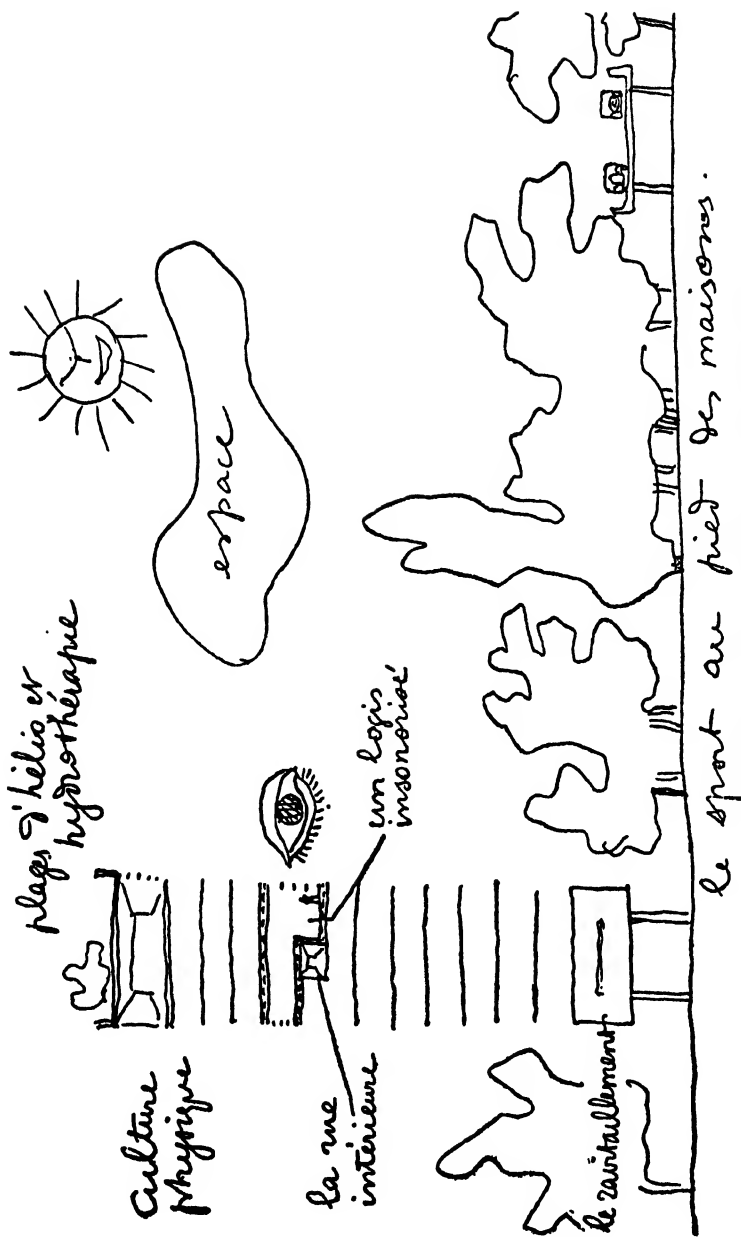 plages d'hélio et
hydrothérapie
espace
culture
physique
la rue
intérieure
un logis
insonorisé
le ravitaillement
le sport au pied des maisons.